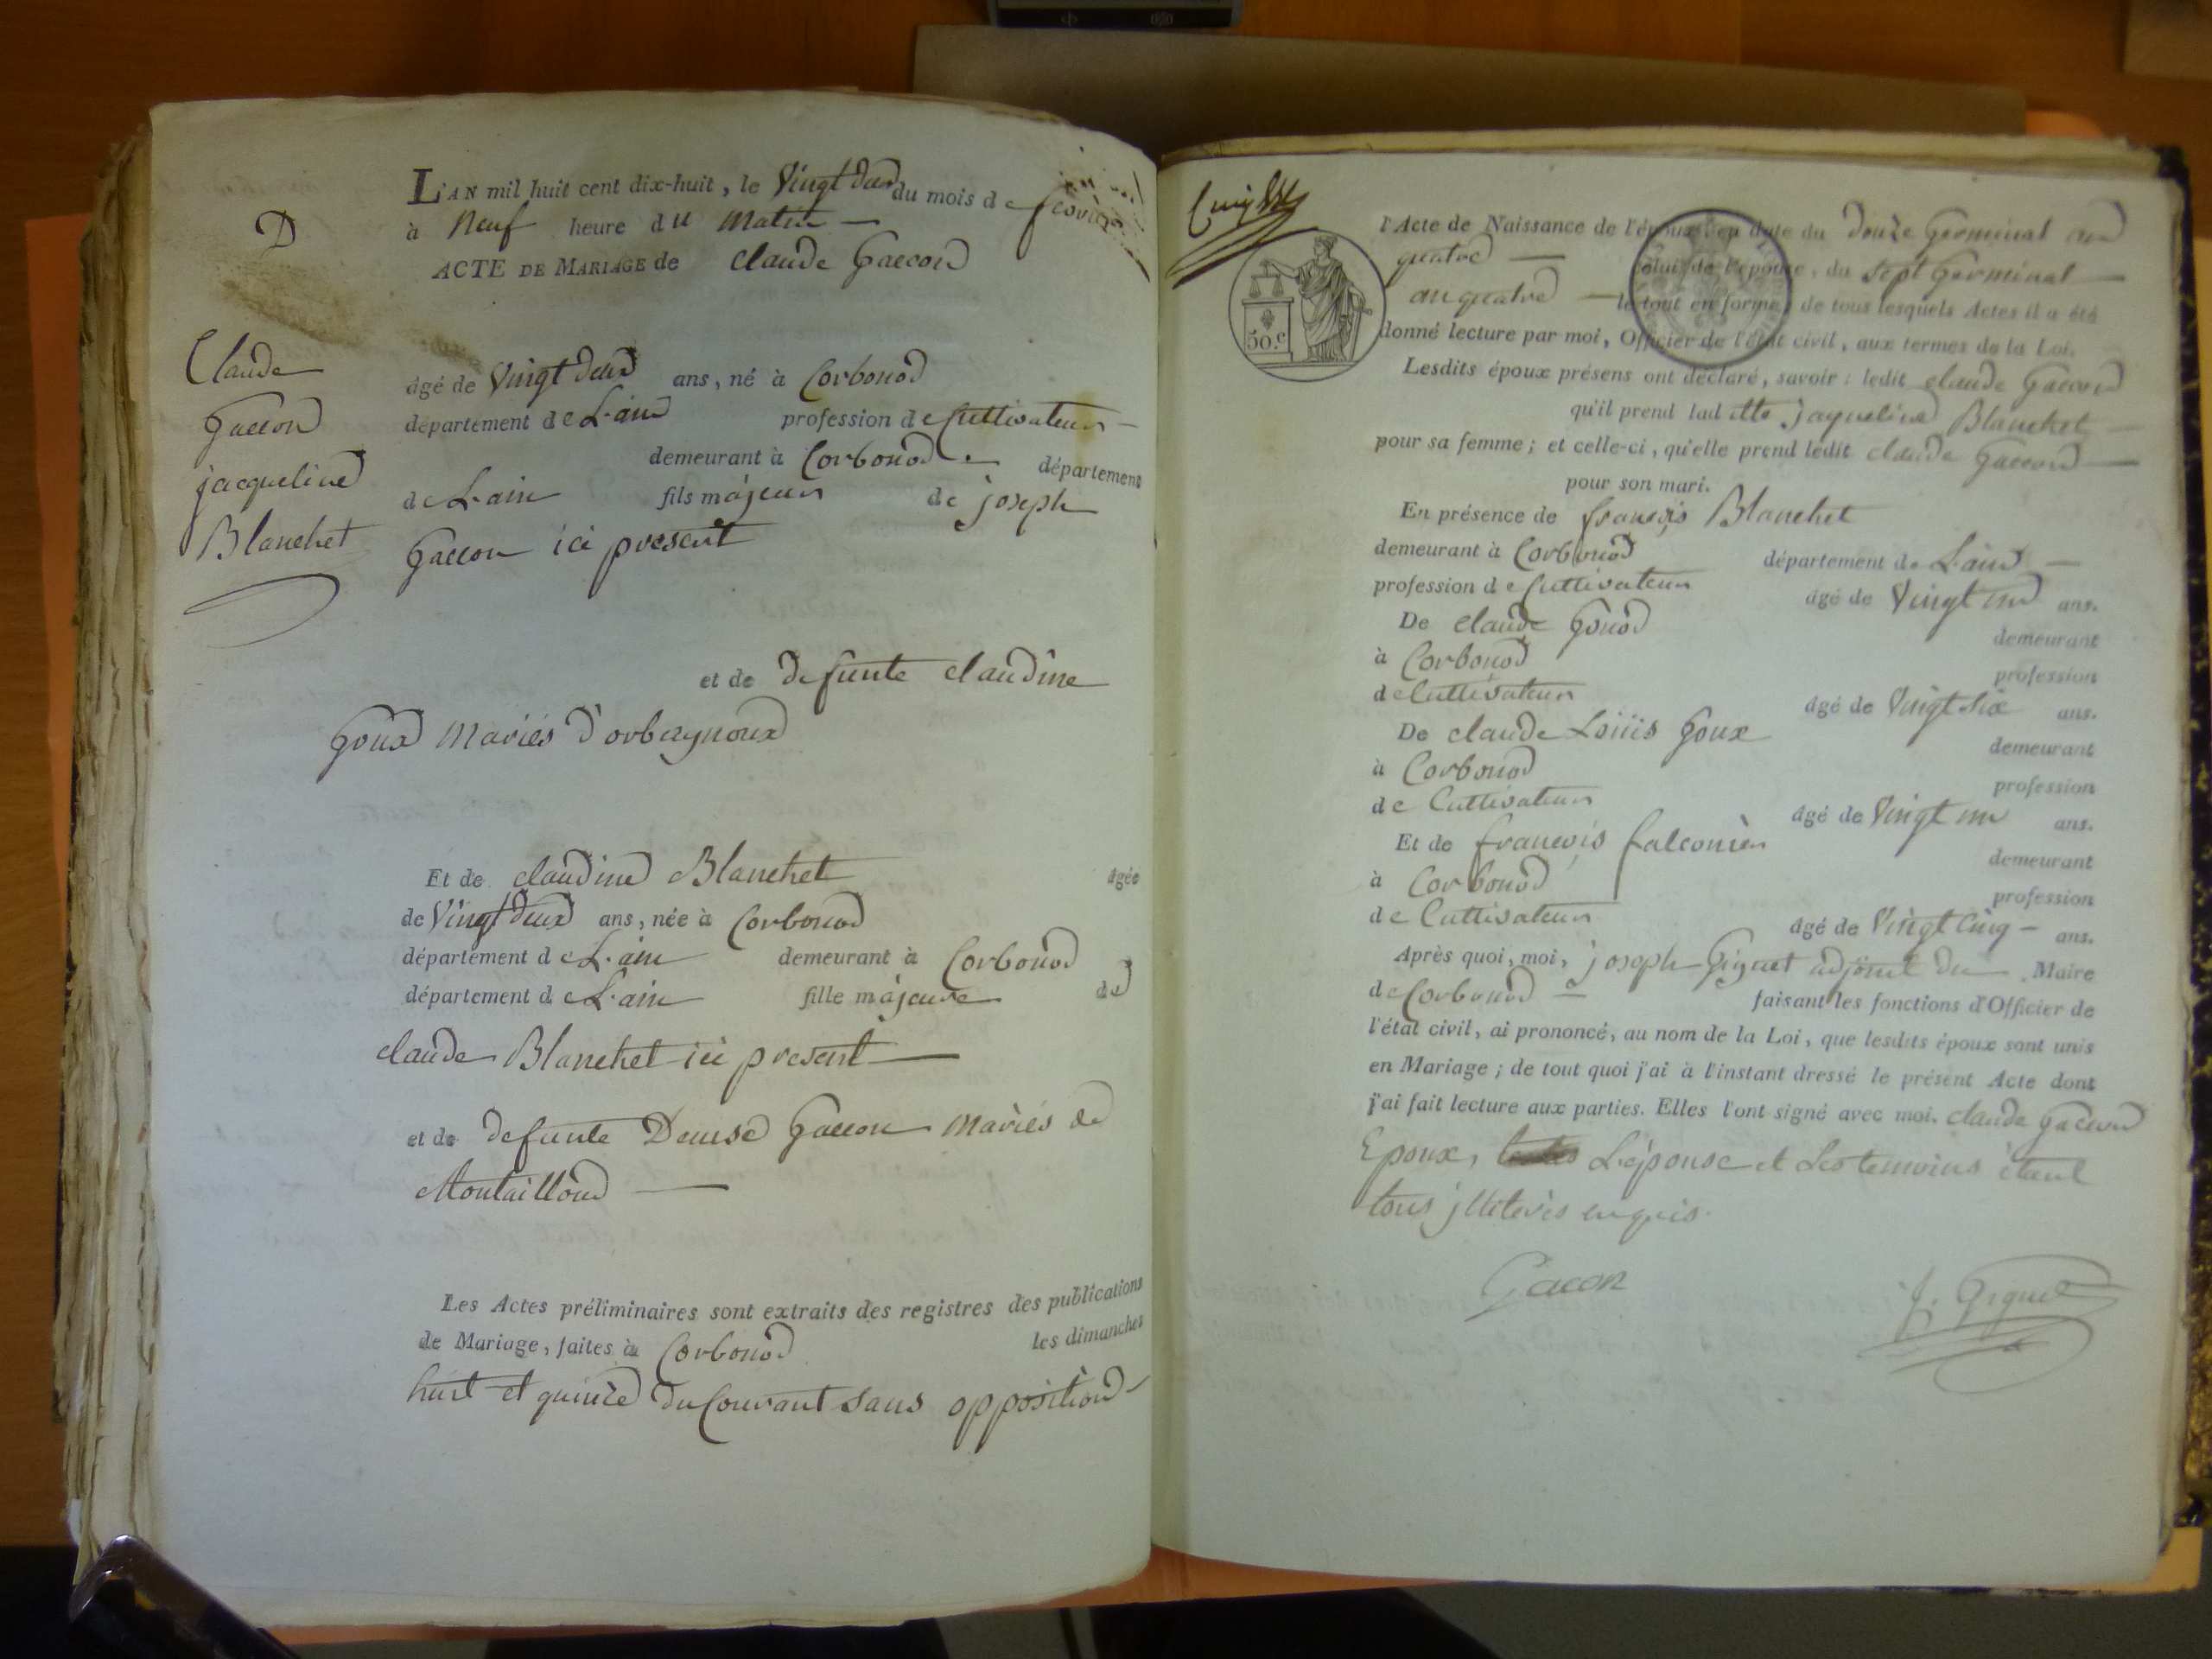 D
L'AN mil huit cent dix-huit, le Vingt deux du mois de fevrier
à Neuf heure du Matin
ACTE DE MARIAGE de claude Gaccon
Claude
Gaccon
jacqueline
Blanchet
âgé de Vingt deux ans, né à Corbonod
département de L'ain profession de Cultivateur
demeurant à Corbonod département
de L'ain fils majeur de joseph
Gaccon ici present
et de defunte claudine
Goux Mariés d'orbagnoux
Et de claudine Blanchet âgée
de Vingt deux ans, née à Corbonod
département de L'ain demeurant à Corbonod
département de L'ain fille majeure de
claude Blanchet ici present
et de defunte Denise Gaccon Mariés de
Montailloud
Les Actes préliminaires sont extraits des registres des publications
de Mariage, faites à Corbonod les dimanches
huit et quinze du Courant sans opposition
50.c
l'Acte de Naissance de l'époux en date du douze Germinal an
quatre celui de l'épouse, du sept Germinal
an quatre le tout en forme; de tous lesquels Actes il a été
donné lecture par moi, Officier de l'état civil, aux termes de la Loi.
Lesdits époux présens ont déclaré, savoir: ledit claude Gaccon
qu'il prend ladite jaqueline Blanchet
pour sa femme; et celle-ci, qu'elle prend ledit claude Gaccon
pour son mari.
En présence de françois Blanchet
demeurant à Corbonod département de L'ain
profession de Cultivateur âgé de Vingt un ans.
De claude Gonod demeurant
à Corbonod profession
de Cultivateur âgé de Vingt Six ans.
De claude Loüis Goux demeurant
à Corbonod profession
de Cultivateur âgé de Vingt un ans.
Et de françois falconier demeurant
à Corbonod profession
de Cultivateur âgé de Vingt Cinq ans.
Après quoi, moi, joseph Gignet adjoint du Maire
de Corbonod faisant les fonctions d'Officier de
l'état civil, ai prononcé, au nom de la Loi, que lesdits époux sont unis
en Mariage; de tout quoi j'ai à l'instant dressé le présent Acte dont
j'ai fait lecture aux parties. Elles l'ont signé avec moi. claude Gaccon
Epoux, L'épouse et Les temoins étant
tous jlleterés enquis.
Gacon
j. Gignet